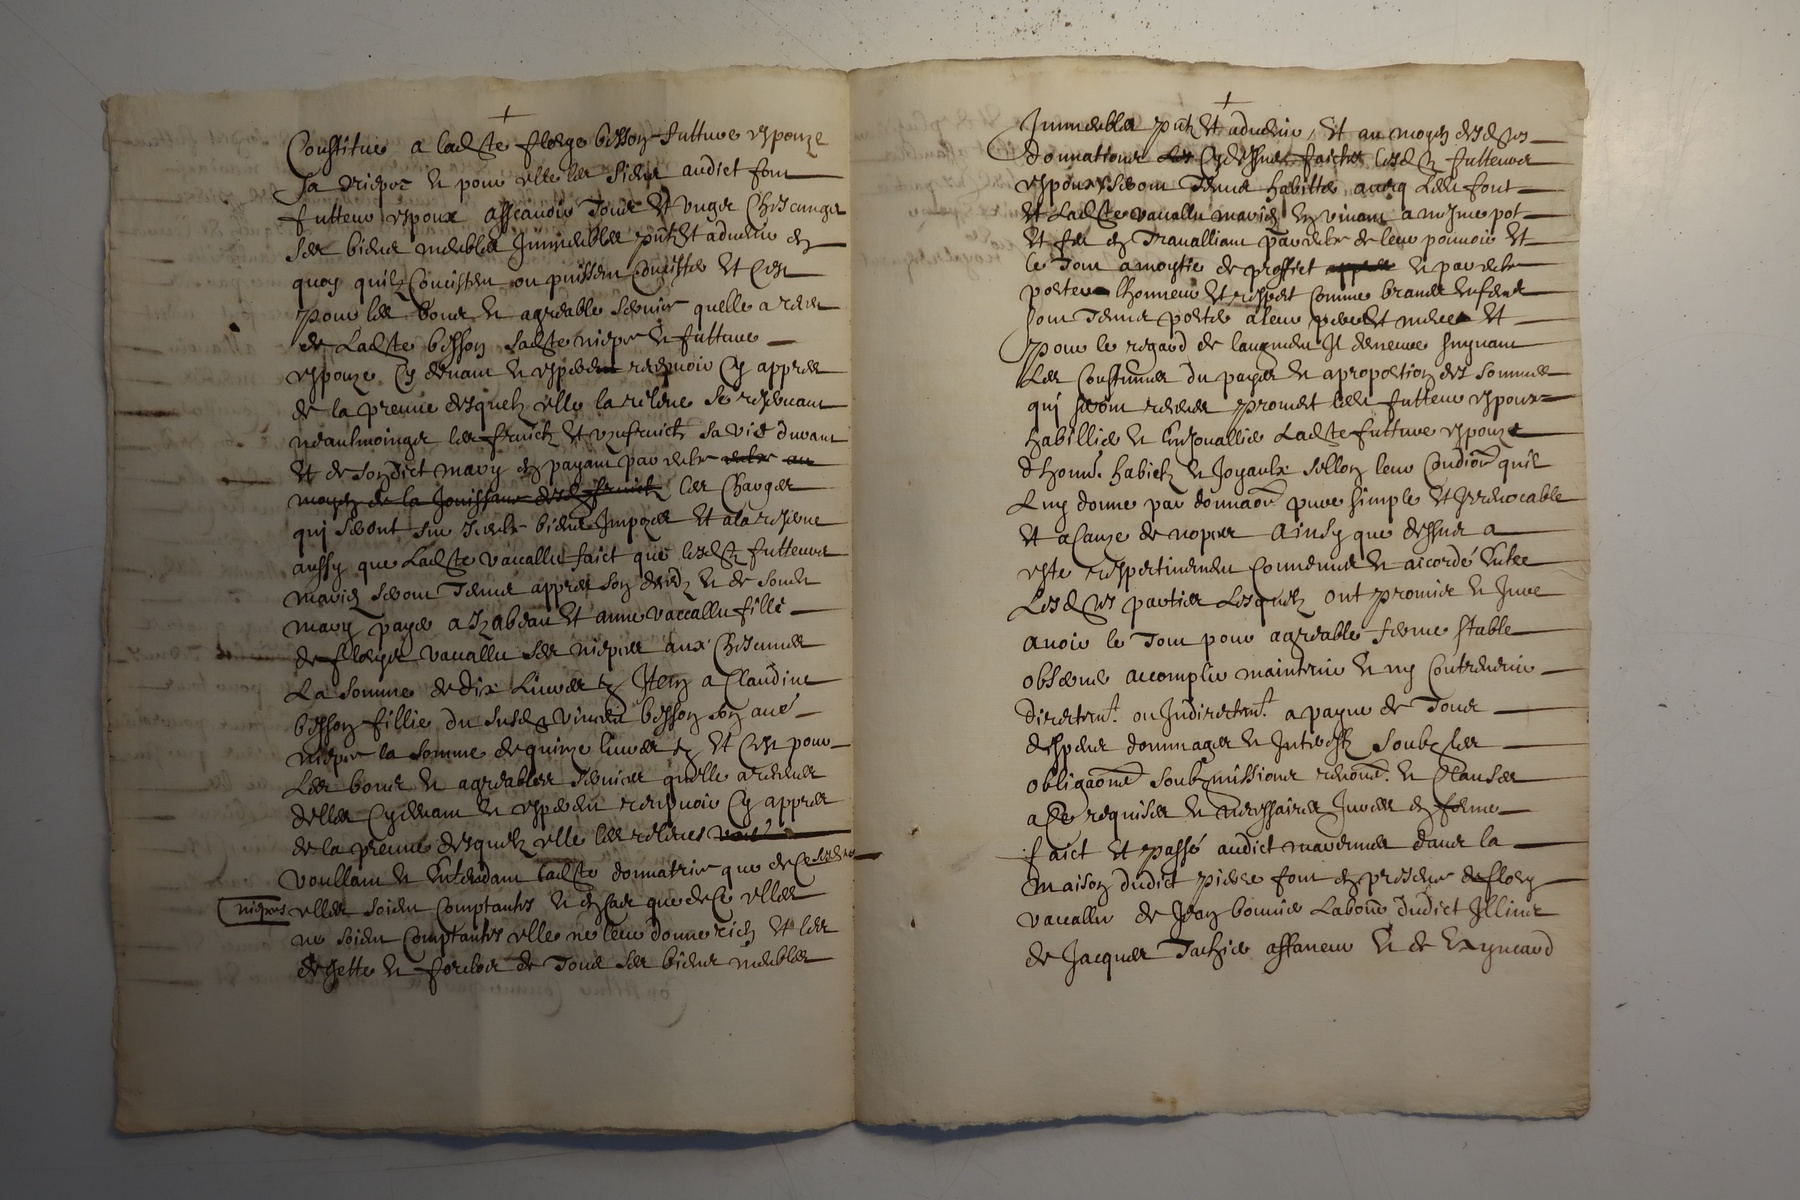 Constitue a ladte florye besson futture espouze
sa niepce et pour elle les siens audict font
futteur espoux assçavoir tous et ungs chescungs
ses biens meubles immeubles pntz et advenir en
quoy quilz concistent ou puissent concister et c'est
pour les bons et agreable service quelle a receu
de ladte besson sadte niepce et futture
espouze cy devant et espere recepvoir cy appres
de la preuve desquelz elle la releve se reservant
neantmoings les fruictz et uzufruictz sa vie durant
et de sondict mary en payant par icelle
moyen de la jouissance desd fruictz les charges
qui seront sur iceulx biens imposes et a la reserve
aussy que ladte vacallie faict que lesdtz futteurs
mariez seront tenus appres son deces et de sondt
mary payer a Izabeau et anne vacallie fille
de florys vacallie ses niepces aux chescunes
La somme de dix livres tz Item a Claudine
besson fillie du susd vincent besson son aue
niepce la somme de quinze livres tz et c'est pour
Les bons et agreables services quelle a receues
delles cydevant et espere recepvoir cy appres
de la preuve desquelz elle les releves
voullant et entendant ladte donnatrix que de ce sesdes
niepces elles soient comptantes et en cas que de ce elles
ne soient comptantes elle ne leur donne rien et les
dejette et forclos de tous ses biens meubles
Immeubles pntz et advenir, et au moyen desdes
donnations cydessus faictes lesdtz futteurs
espoux seront tenus habitter avecq lesd font
et ladte vacallie mariez en vivant a mesme pot
et feu en travalliant par icelx de leur pouvoir et
le tout a moytie de proffict et par icelx
porter lhonneur et respect comme braves enfens
sont tenus porter a leur pere et mere et
pour le regard de laugment il demeure suyvant
Les coustumes du pays et a proportion des sommes
qui seront receues promet led futteur espoux
habillier et enjouallier ladte futture espouze
dhonns habictz et joyaulx sellon leur condion quil
Luy donne par donnaon pure simple et irrevocable
et a cauze de nopces Ainsy que dessus a
este respectivement convenu et accordé entre
Lesdes parties Lesquelz ont promis et jure
avoir le tout pour agreable ferme stable
observer accomplir maintenir et ny contrevenir
directemt. ou indirectemt. a payne de tous
despens dommages et interestz soubz les
obligaons soubzmissions renons. et clauses
a ce requises et necessaires jures en forme
faict et passé audict mavernes dans la
maison dudict pierre font en presence de flory
vacallie de Jean bonnier Laboure dudict Illins
de Jacques Tachier affaneur et de Eyneard